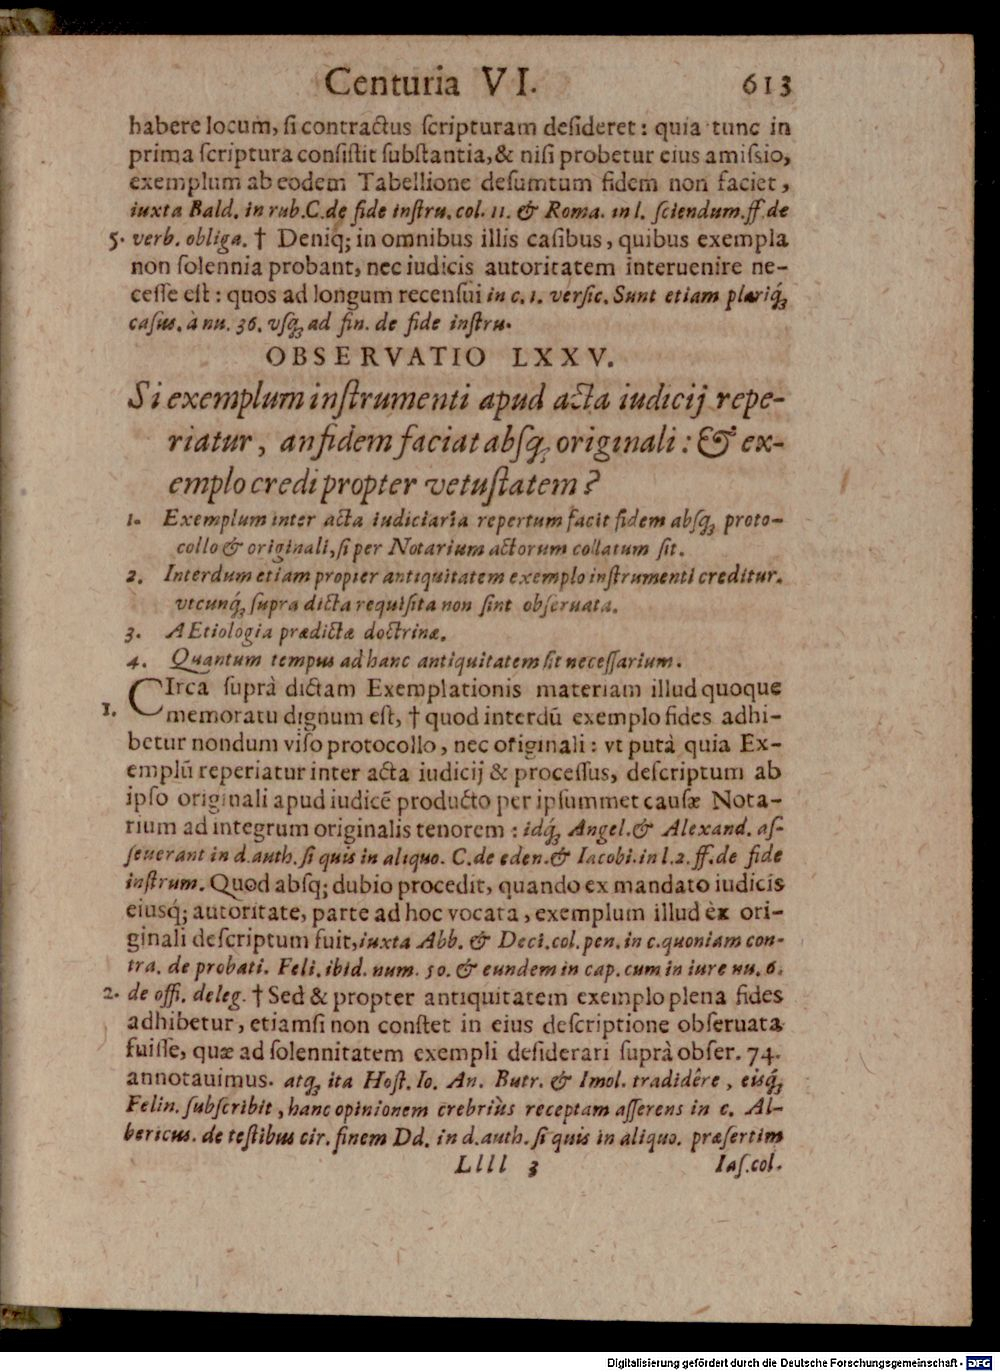 Centuria VI. 613
habere locum, si contractus scripturam desideret: quia tunc in
prima scriptura consistit substantia, & nisi probetur eius amissio,
exemplum ab eodem Tabellione desumtum fidem non faciet,
iuxta Bald. in rub. C. de fide instru. col. 11. & Roma. in l. sciendum. ff. de
5. verb. obliga. † Deniq; in omnibus illis casibus, quibus exempla
non solennia probant, nec iudicis autoritatem interuenire ne-
cesse est: quos ad longum recensui in c. 1. versic. Sunt etiam pleriq́;
casus. à nu. 36. vsq; ad fin. de fide instru.
OBSERVATIO LXXV.
Si exemplum instrumenti apud acta iudicij repe-
riatur, an fidem faciat absq; originali: & ex-
emplo credi propter vetustatem?
1. Exemplum inter acta iudiciaria repertum facit fidem absq; proto-
collo & originali, si per Notarium actorum collatum sit.
2. Interdum etiam propter antiquitatem exemplo instrumenti creditur.
vtcunq́; supra dicta requisita non sint obseruata.
3. AEtiologia prædictæ doctrinæ.
4. Quantum tempus ad hanc antiquitatem sit necessarium.
CIrca suprà dictam Exemplationis materiam illud quoque
1. memoratu dignum est, † quod interdū exemplo fides adhi-
betur nondum viso protocollo, nec originali: vt putà quia Ex-
emplū reperiatur inter acta iudicij & processus, descriptum ab
ipso originali apud iudicē producto per ipsummet causæ Nota-
rium ad integrum originalis tenorem: idq́; Angel. & Alexand. as-
seuerant in d. auth. si quis in aliquo. C. de eden. & Iacobi. in l. 2. ff. de fide
instrum. Quod absq; dubio procedit, quando ex mandato iudicis
eiusq́; autoritate, parte ad hoc vocata, exemplum illud èx ori-
ginali descriptum fuit, iuxta Abb. & Deci. col. pen. in c. quoniam con-
tra. de probati. Feli. ibid. num. 50. & eundem in cap. cum in iure nu. 6.
2. de offi. deleg. † Sed & propter antiquitatem exemplo plena fides
adhibetur, etiamsi non constet in eius descriptione obseruata
fuisse, quæ ad solennitatem exempli desiderari suprà obser. 74.
annotauimus. atq; ita Host. Io. An. Butr. & Imol. tradidêre, eisq́;
Felin. subscribit, hanc opinionem crebriùs receptam asserens in c. Al-
bericus. de testibus cir. finem Dd. in d. auth. si quis in aliquo. præsertim
Llll 3 Ias. col.
Digitalisierung gefördert durch die Deutsche Forschungsgemeinschaft - DFG